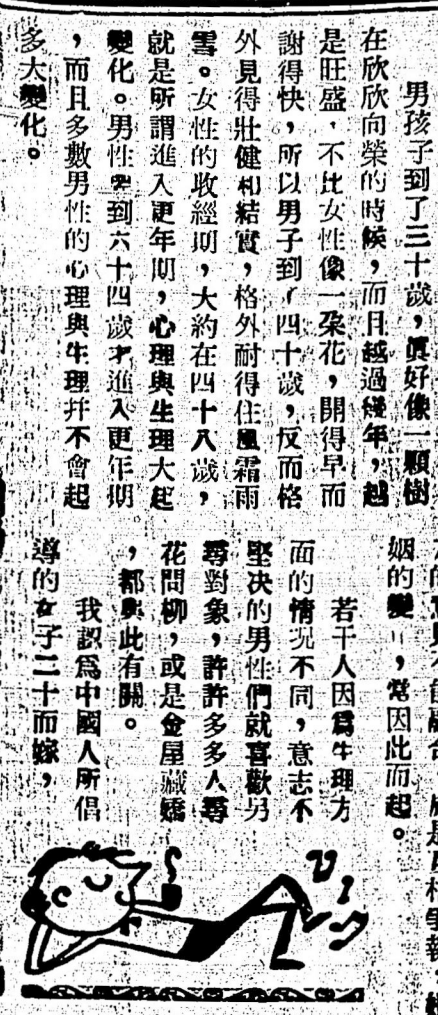 男孩子到了三十歲，眞好像一顆樹
在欣欣向榮的時候，而且越過幾年，越
是旺盛，不比女性像一朶花，開得早而
謝得快，所以男子到了四十歲，反而格
外見得壯健和結實，格外耐得住風霜雨
雪。女性的收經期，大約在四十八歲，
就是所謂進入更年期，心理與生理大起
變化。男性要到六十四歲才進入更年期
，而且多數男性的心理與生理幷不會起
多大變化。
姻的變，常因此而起。
若干人因爲生理方
面的情况不同，意志不
堅决的男性們就喜歡另
尋對象，許許多多人尋
花問柳，或是金屋藏嬌
，都與此有關。
我認爲中國人所倡
導的女子二十而嫁，